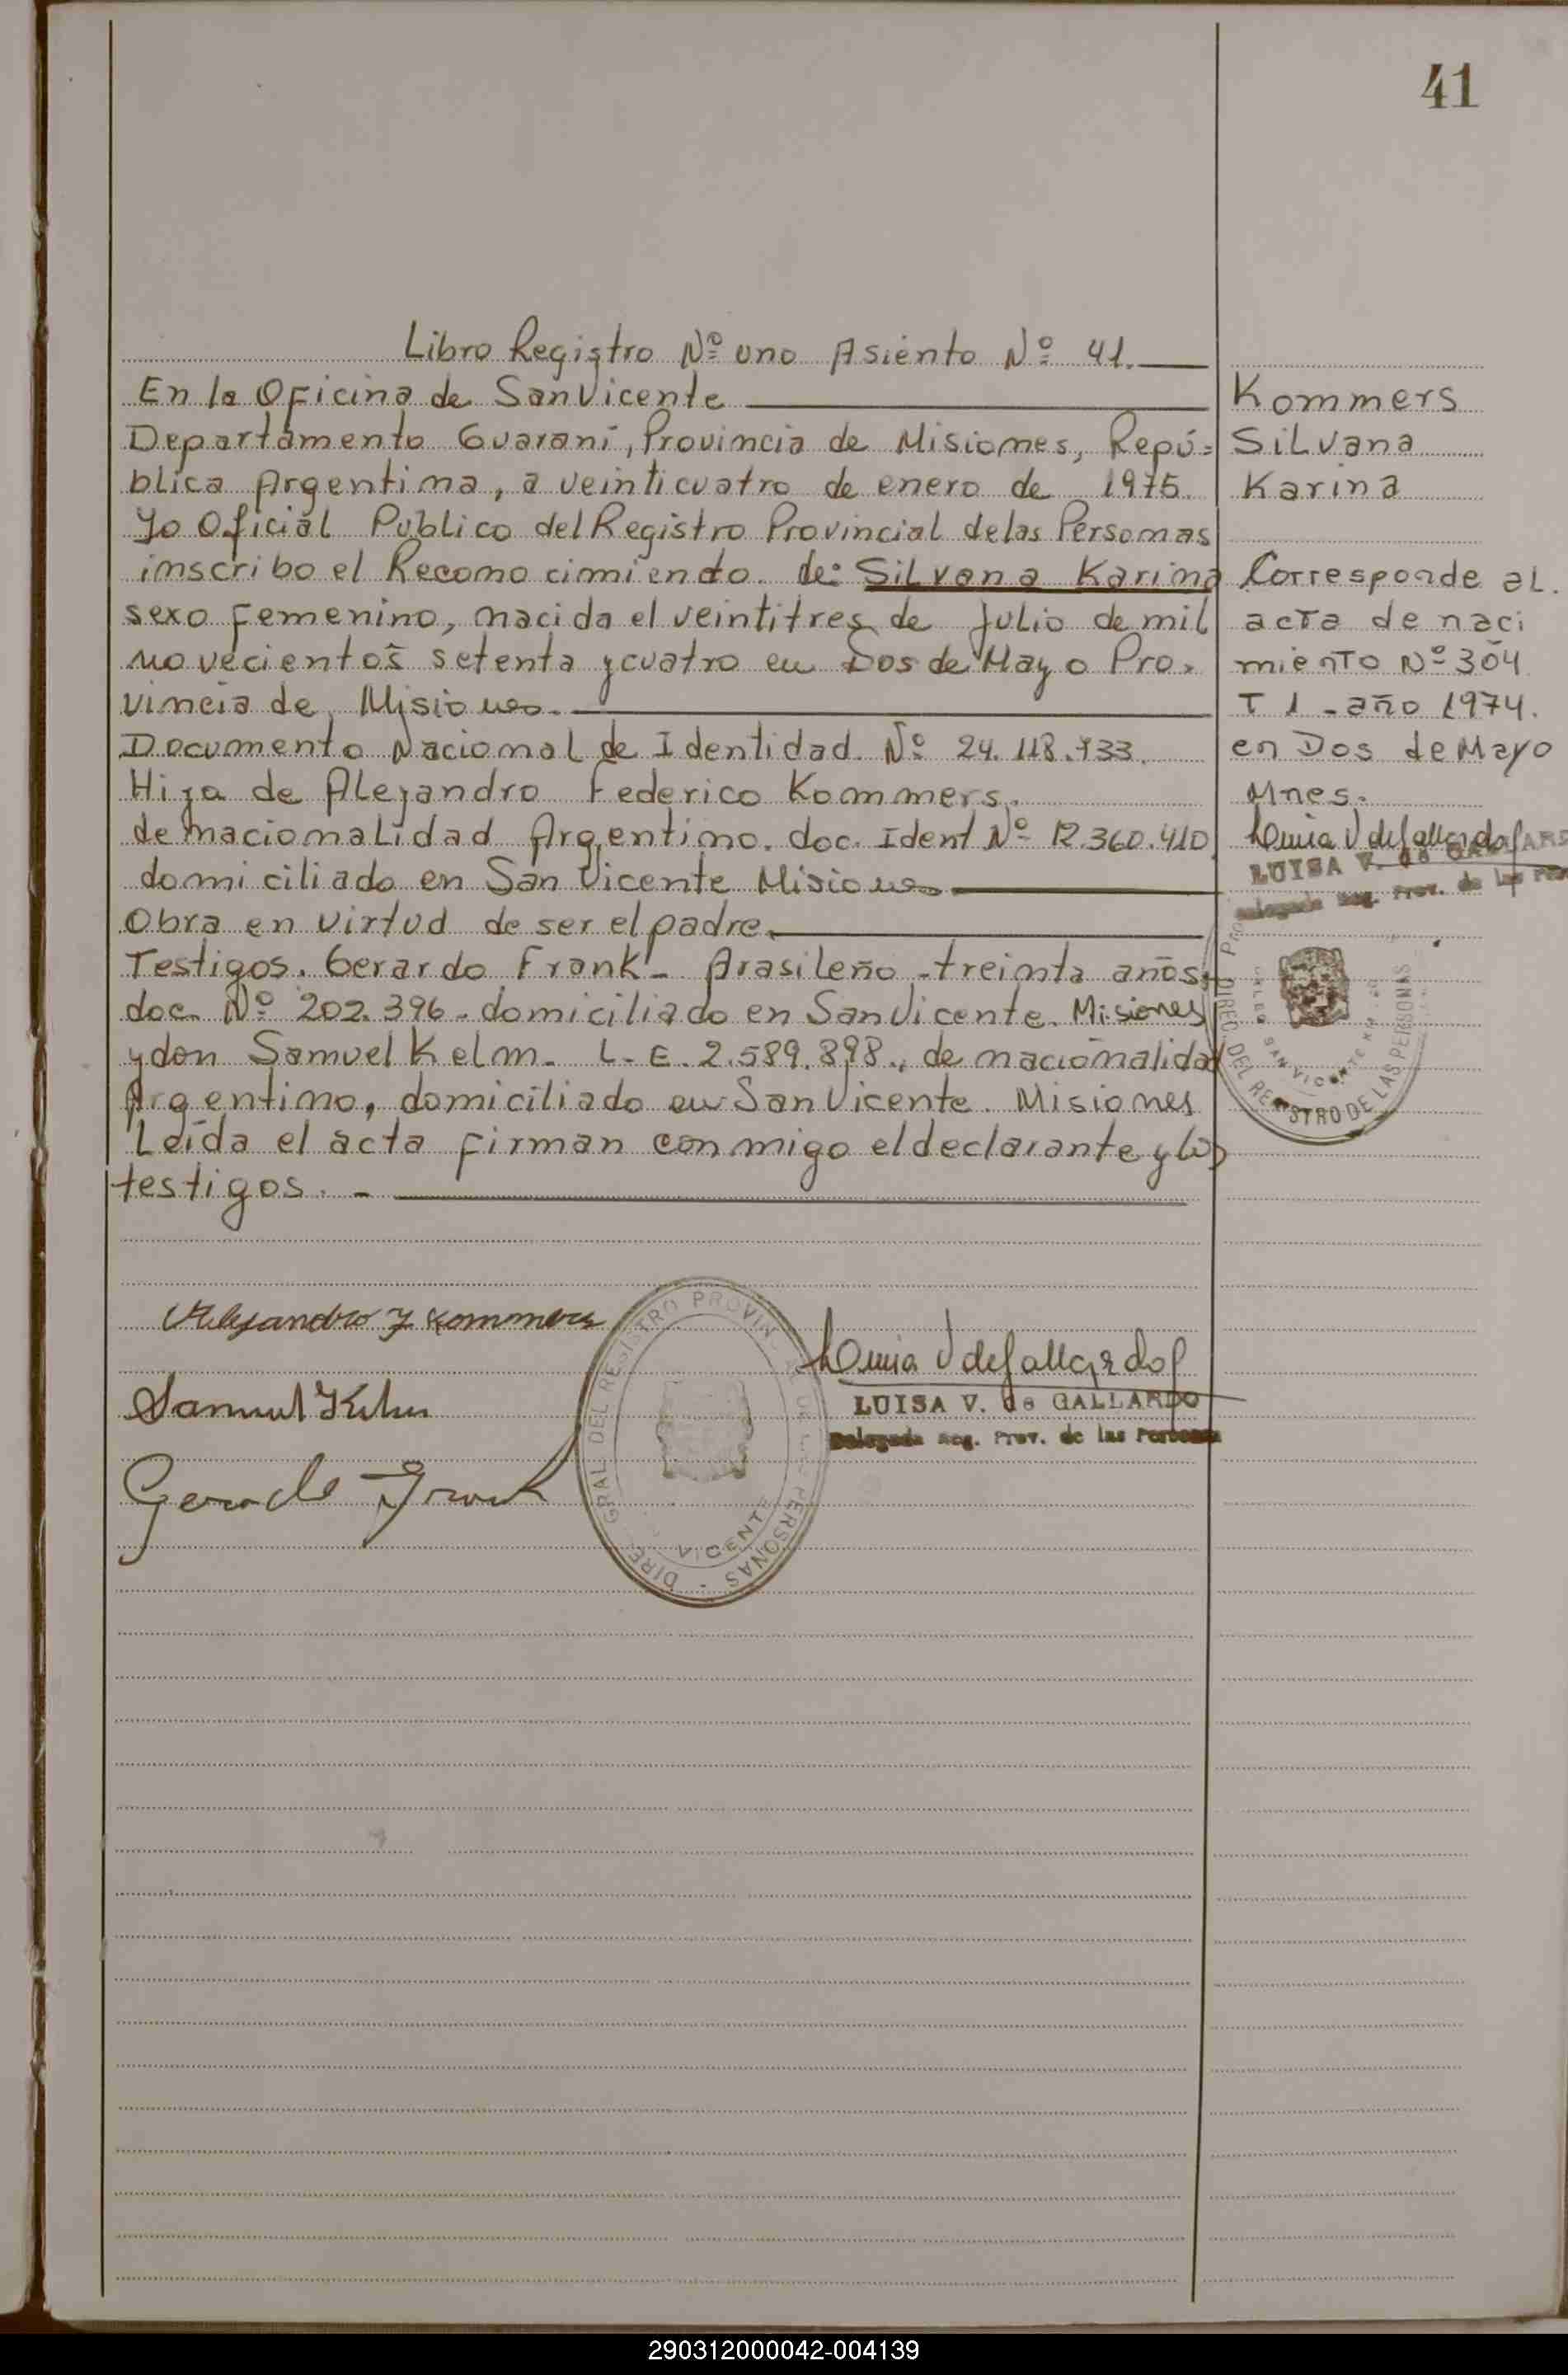 41
Libro Registro Nº uno Asiento Nº 41.
En la Oficina de San Vicente
Departamento Guaraní, Provincia de Misiones, Repú=
blica Argentina, a veinticuatro de enero de 1975.
Yo Oficial Publico del Registro Provincial de las Personas
inscribo el Reconocimiendo. de: Silvana Karina
sexo femenino, nacida el veintitres de Julio de mil
novecientos setenta y cuatro en Dos de Mayo Pro-
vincia de Misiones.
Documento Nacional de Identidad Nº 24.118.733.
Hija de Alejandro Federico Kommers.
de nacionalidad Argentino. doc. Ident Nº 12.360.410
domiciliado en San Vicente Misiones
Obra en virtud de ser el padre.
Testigos. Gerardo Frank - Brasileño - treinta años.
doc. Nº 202.396. domiciliado en San Vicente. Misiones
y don Samuel Kelm. L.E. 2.589.898., de nacionalidad
Argentino, domiciliado en San Vicente. Misiones
Leída el acta firman conmigo el declarante y los
testigos. -
Kommers
Silvana
Karina
Corresponde al.
acta de naci
miento Nº 304
T 1 - año 1974.
en Dos de Mayo
Mnes.
Luisa V de Gallardo
LUISA V. de GALLARDO
Delegada Reg. Prov. de las
DIREC DEL REGISTRO DE LAS PERSONAS
SAN VICENTE
Alejandro F Kommers
Samuel Kelm
Gerardo Frank
DIRE. GRAL DEL REGISTRO PROVINCIAL DE LAS PERSONAS
VICENTE
Luisa V de Gallardo
LUISA V. de GALLARDO
Delegada Reg. Prov. de las Personas
290312000042-004139